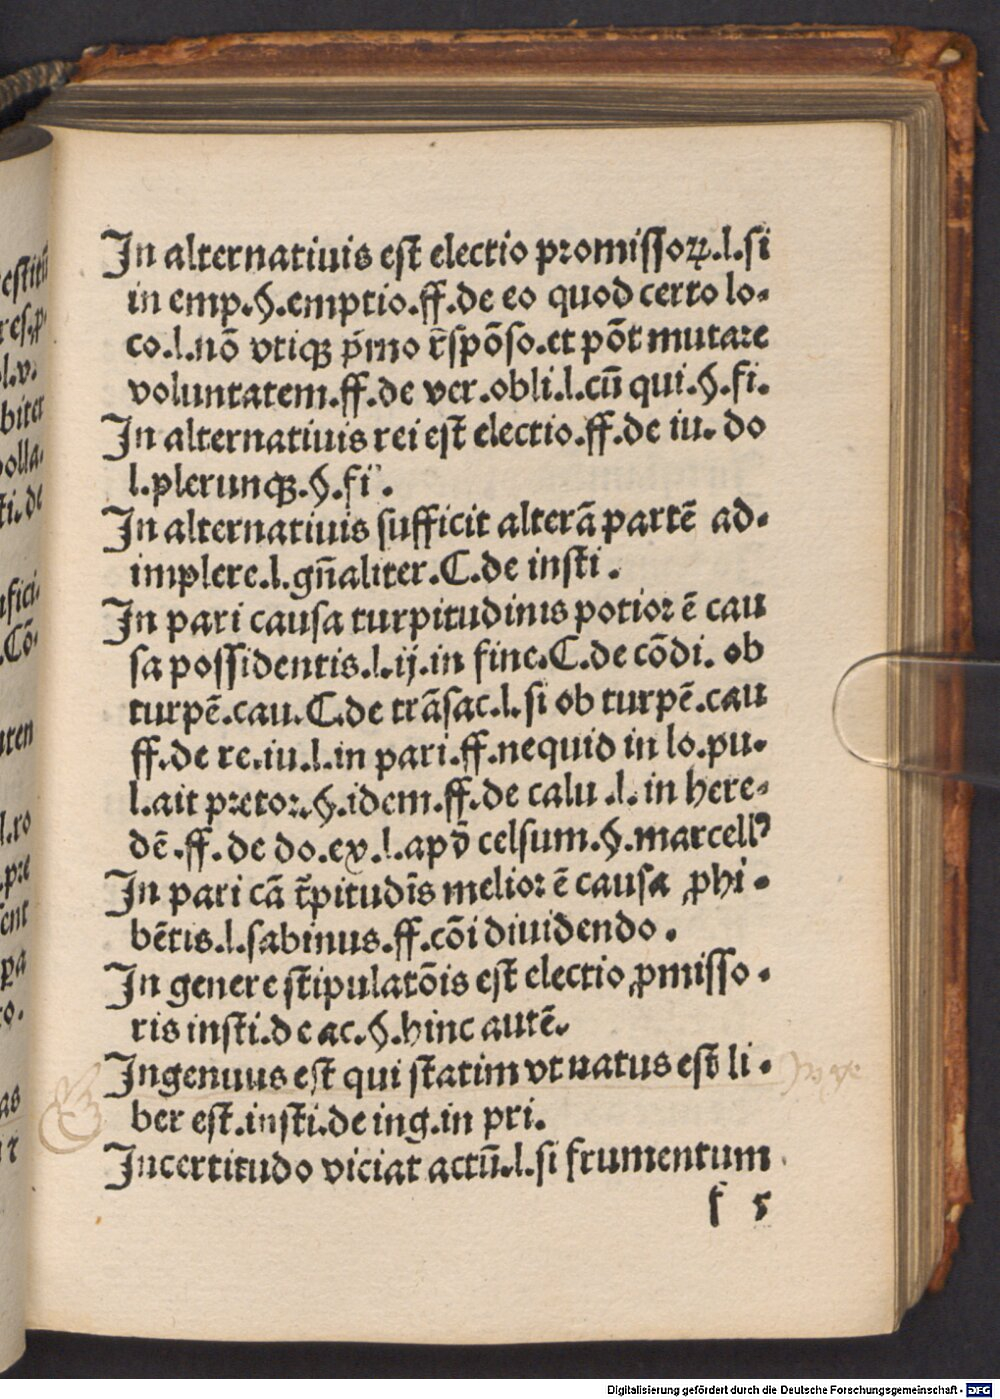 In alternatiuis est electio promissoꝝ.l.si
in emp.§.emptio.ff.de eo quod certo lo-
co.l.nō vtiqꝫ p̄mo r̄spōso.et pōt mutare
voluntatem.ff.de ver.obli.l.cū qui.§.fi.
In alternatiuis rei est electio.ff.de iu. do
l.plerunqꝫ.§.fi.
In alternatiuis sufficit alterā partē ad-
implere.l.gn̄aliter.C.de insti.
In pari causa turpitudinis potior ē cau
sa possidentis.l.ij.in fine.C.de cōdi. ob
turpē.cau.C.de trāsac.l.si ob turpē.cau
ff.de re.iu.l.in pari.ff.nequid in lo.pu.
l.ait pretor.§.idem.ff.de calu.l.in here-
dē.ff.de do.ex.l.apd̄ celsum.§.marcellꝰ
In pari cā t̄pitudīs melior ē causa ꝓhi-
bētis.l.sabinus.ff.cōi diuidendo.
In genere stipulatōis est electio ꝓmisso-
ris insti.de ac.§.hinc autē.
Ingenuus est qui statim vt natus est li-
ber est.insti.de ing.in pri.
Incertitudo viciat actū.l.si frumentum
f 5
Digitalisierung gefördert durch die Deutsche Forschungsgemeinschaft - DFG